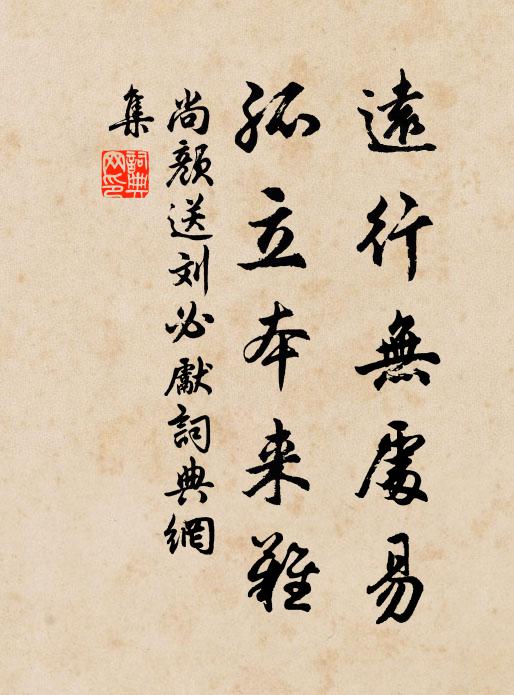 遠行無處易
孤立本来難
尚顏送刘必獻詞典網
集
詞典
网印